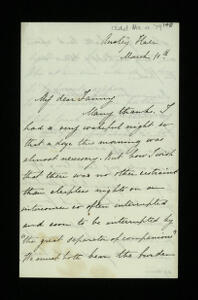 Austin Hall
March 11th
My dear Fanny
Many thanks. I
had a very wakeful night so
that a doze this morning was
almost necessary. But how I wish
that there was no other restraint
than sleepless nights on an
intercourse so often interrupted
and soon to be interrupted by
"the great separator of companions"
We must both bear the burden